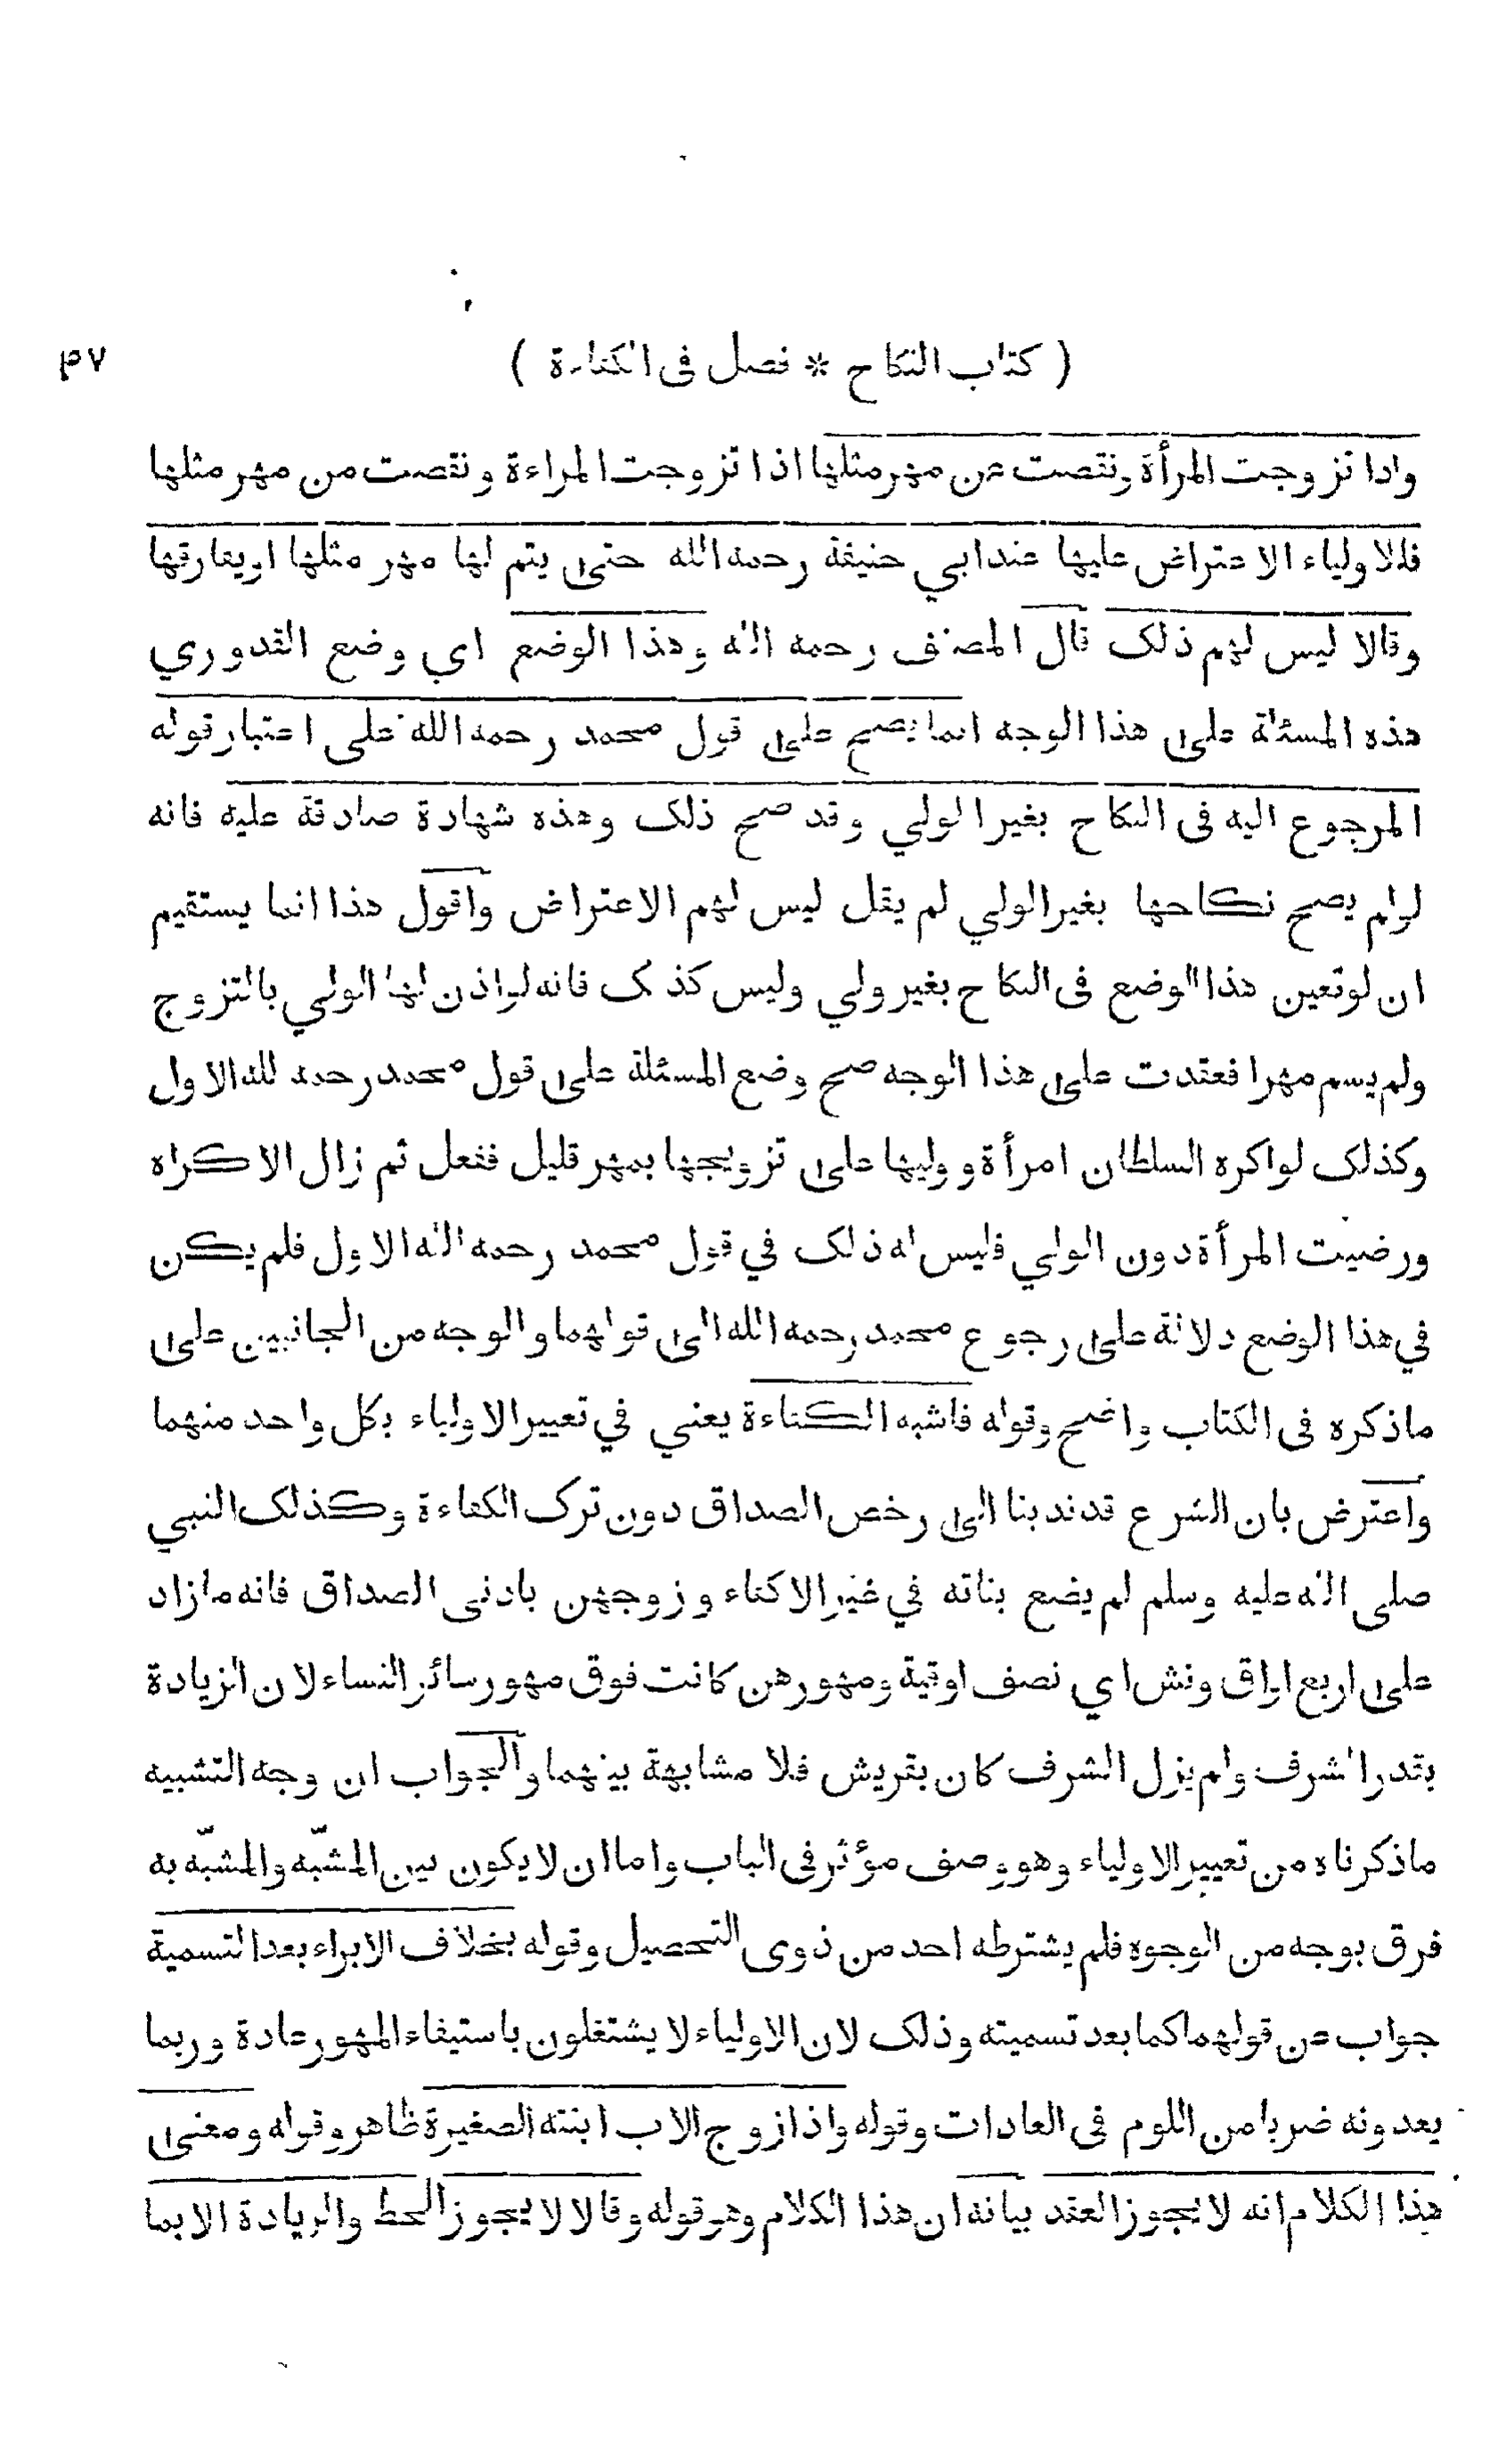 ( كتاب النكاح * فصل فى الكفاءة ) ٤٧
واذا تزوجت المرأة ونقصت عن مهر مثلها اذا تزوجت المراءة ونقصت من مهر مثلها
فللاولياء الاعتراض عليها عند ابي حنيفة رحمه الله حتى يتم لها مهر مثلها او يفارقها
وقالا ليس لهم ذلك قال المصنف رحمه الله وهذا الوضع اي وضع القدوري
هذه المسئلة على هذا الوجه انما يصح على قول محمد رحمه الله على اعتبار قوله
المرجوع اليه فى النكاح بغير الولي وقد صح ذلك وهذه شهادة صادقة عليه فانه
لو لم يصح نكاحها بغير الولي لم يقل ليس لهم الاعتراض واقول هذا انما يستقيم
ان لو تعين هذا الوضع فى النكاح بغير ولي وليس كذلك فانه لو اذن لها الولي بالتزوج
ولم يسم مهرا فعقدت على هذا الوجه صح وضع المسئلة على قول محمد رحمه الله الاول
وكذلك لو اكره السلطان امرأة ووليها على تزويجها بمهر قليل ففعل ثم زال الاكراه
ورضيت المرأة دون الولي فليس له ذلك في قول محمد رحمه الله الاول فلم يكن
في هذا الوضع دلالة على رجوع محمد رحمه الله الى قولهما والوجه من الجانبين على
ماذكره فى الكتاب واضح وقوله فاشبه الكفاءة يعني في تعيير الاولياء بكل واحد منهما
واعترض بان الشرع قد ندبنا الى رخص الصداق دون ترك الكفاءة وكذلك النبي
صلى الله عليه وسلم لم يضع بناته في غير الاكفاء وزوجهن بادنى الصداق فانه مازاد
على اربع اواق ونش اي نصف اوقية ومهورهن كانت فوق مهور سائر النساء لان الزيادة
بقدر الشرف ولم يزل الشرف كان بقريش فلا مشابهة بينهما والجواب ان وجه التشبيه
ماذكرناه من تعيير الاولياء وهو وصف مؤثر فى الباب واما ان لا يكون بين المشبّه والمشبّه به
فرق بوجه من الوجوه فلم يشترطه احد من ذوى التحصيل وقوله بخلاف الابراء بعد التسمية
جواب عن قولهما كما بعد تسميته وذلك لان الاولياء لا يشتغلون باستيفاء المهور عادة وربما
يعدونه ضربا من اللوم فى العادات وقوله واذا زوج الاب ابنته الصغيرة ظاهر وقوله ومعنى
هذا الكلام انه لا يجوز العقد بيانه ان هذا الكلام وهو قوله وقالا لا يجوز الحط والزيادة الا بما